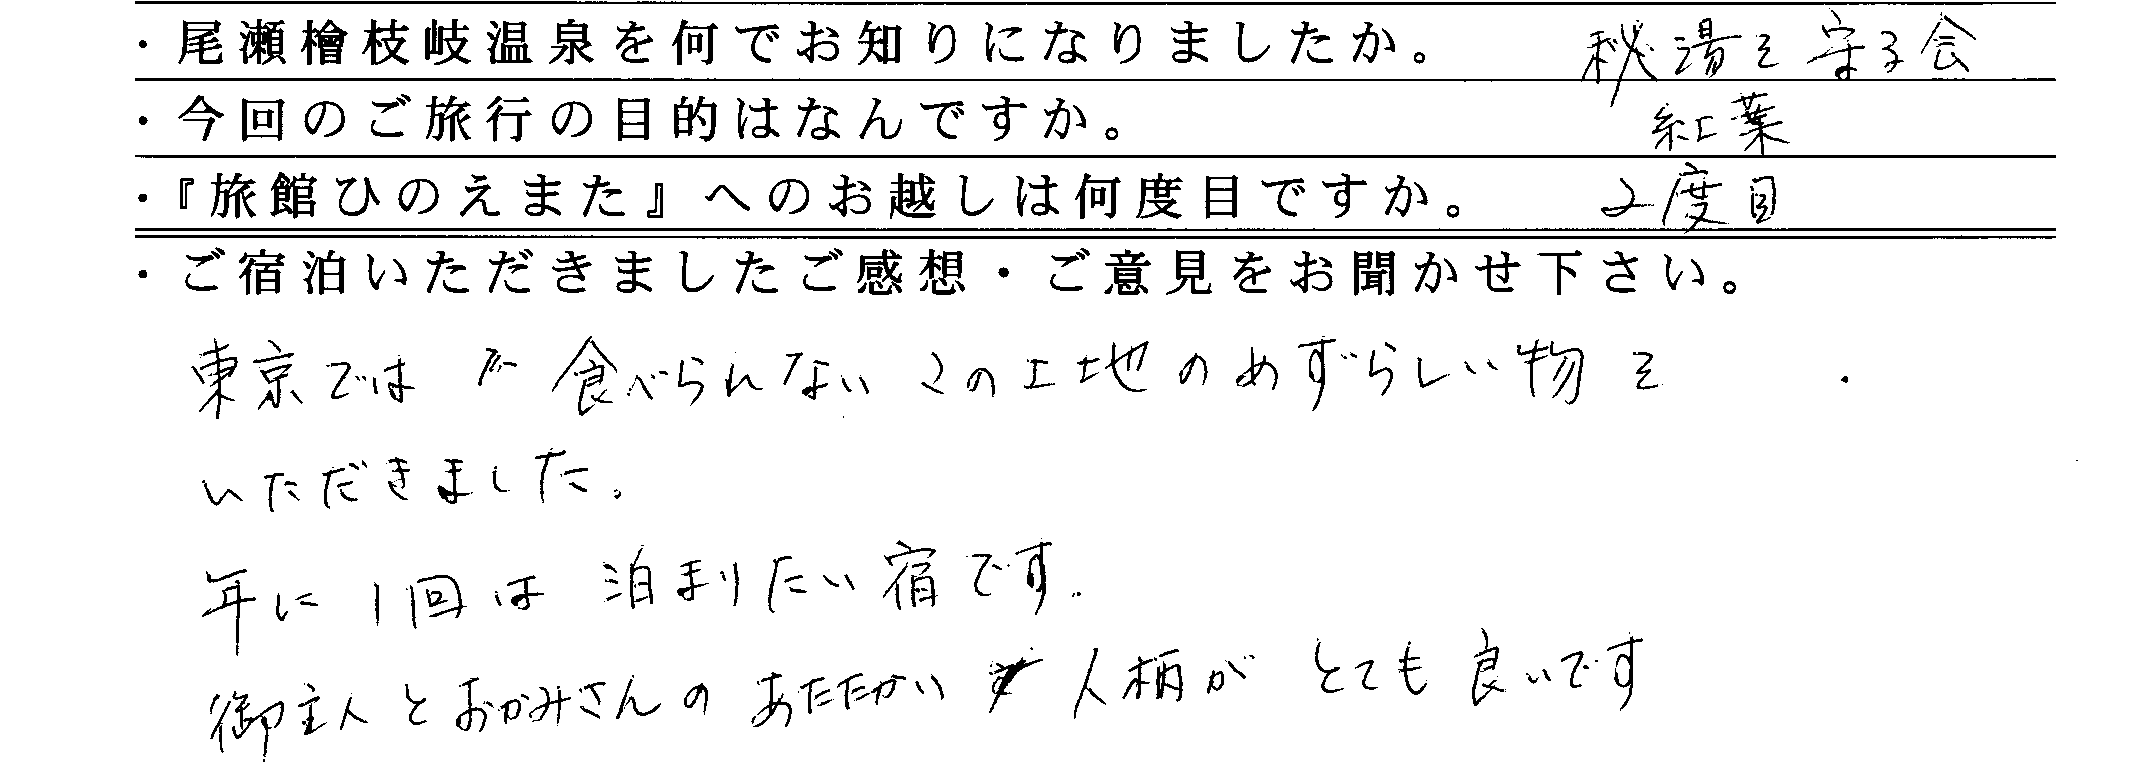 ・尾瀬檜枝岐温泉を何でお知りになりましたか。 秘湯を守る会
・今回のご旅行の目的はなんですか。 紅葉
・『旅館ひのえまた』へのお越しは何度目ですか。 2度目
・ご宿泊いただきましたご感想・ご意見をお聞かせ下さい。
東京では 食べられない この土地のめずらしい物を
いただきました。
年に1回は 泊まりたい宿です。
御主人とおかみさんの あたたかい 人柄が とても良いです